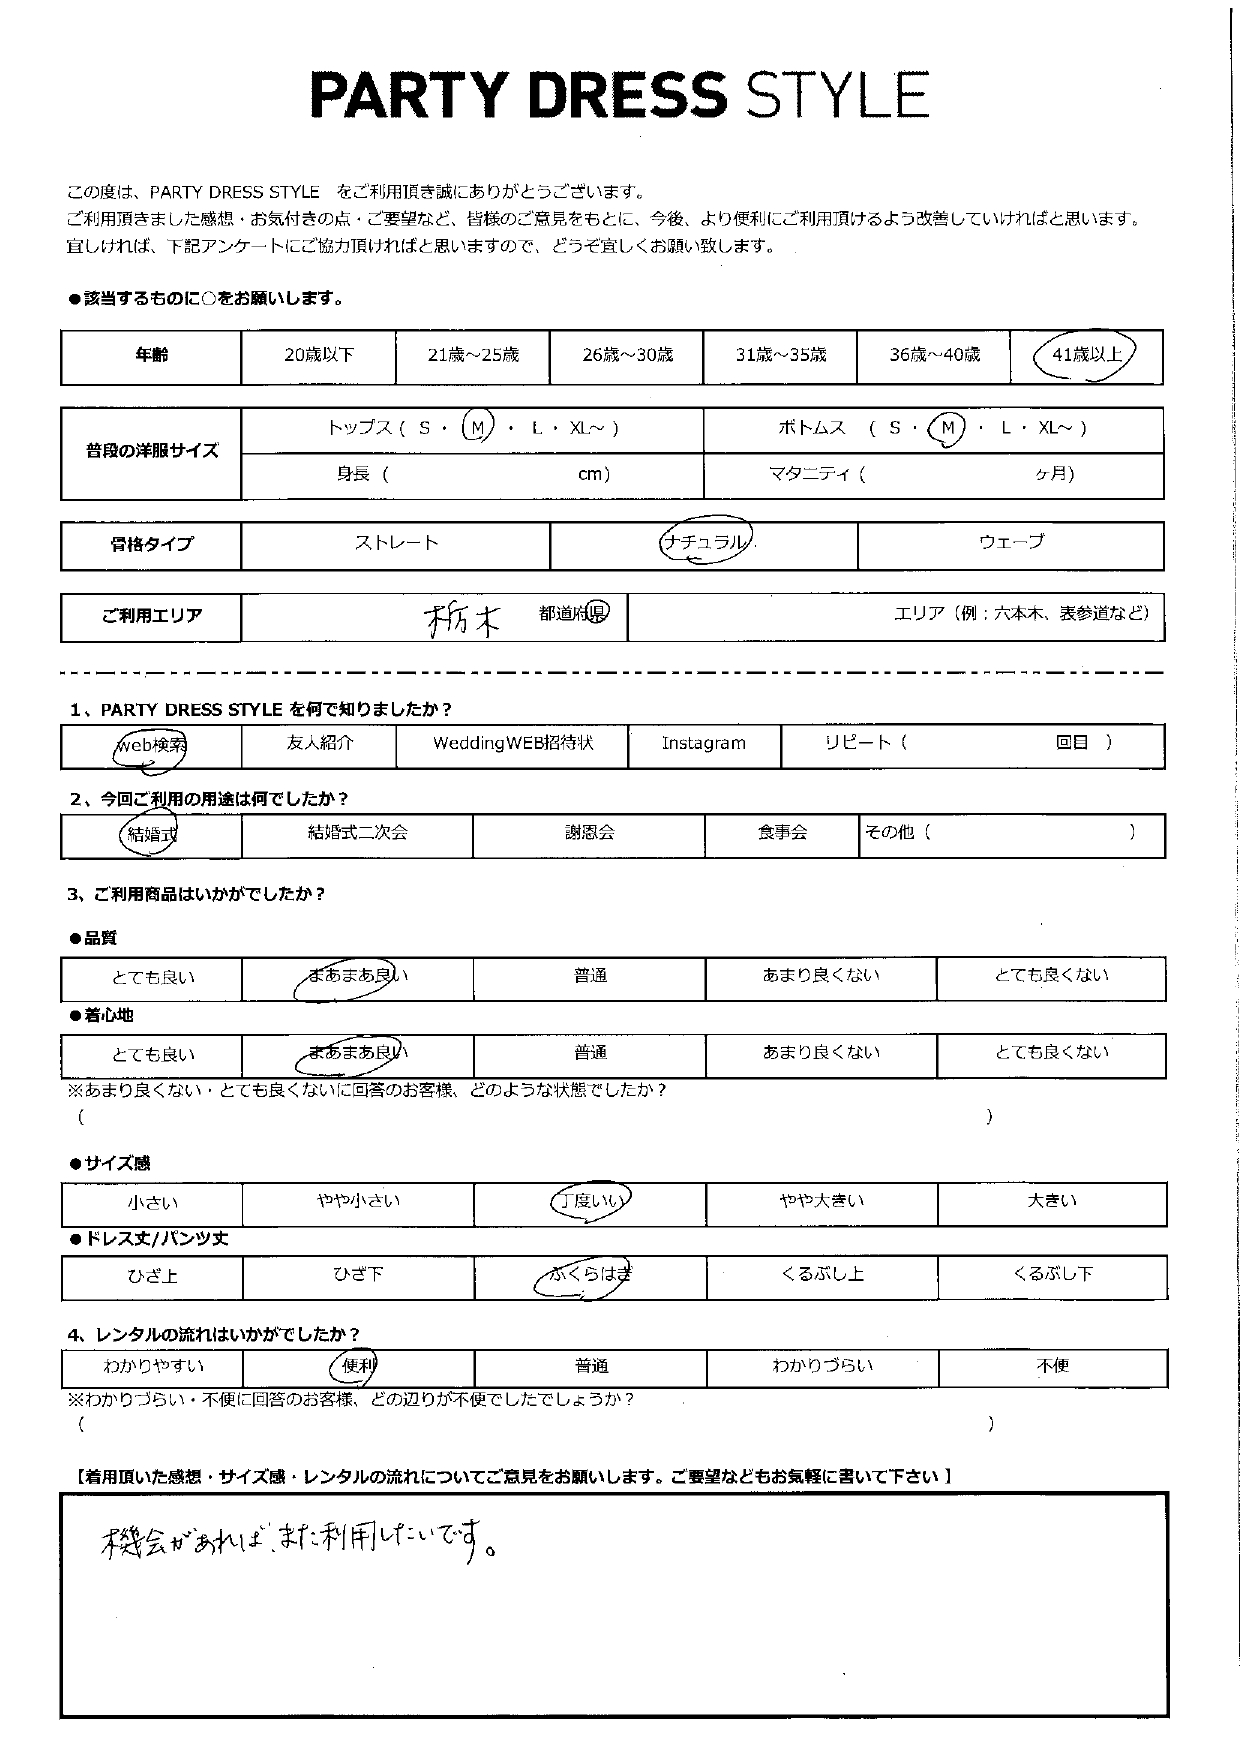 PARTY DRESS STYLE
この度は、PARTY DRESS STYLE をご利用頂き誠にありがとうございます。
ご利用頂きました感想・お気付きの点・ご要望など、皆様のご意見をもとに、今後、より便利にご利用頂けるよう改善していければと思います。
宜しければ、下記アンケートにご協力頂ければと思いますので、どうぞ宜しくお願い致します。
●該当するものに○をお願いします。
年齢 20歳以下 21歳～25歳 26歳～30歳 31歳～35歳 36歳～40歳 41歳以上
普段の洋服サイズ
トップス ( S ・ M ・ L ・ XL～ ) ボトムス ( S ・ M ・ L ・ XL～ )
身長 ( cm) マタニティ ( ヶ月)
骨格タイプ ストレート ナチュラル ウェーブ
ご利用エリア 栃木 都道府県 エリア（例；六本木、表参道など）
1、PARTY DRESS STYLE を何で知りましたか？
web検索 友人紹介 WeddingWEB招待状 Instagram リピート ( 回目 )
2、今回ご利用の用途は何でしたか？
結婚式 結婚式二次会 謝恩会 食事会 その他 ( )
3、ご利用商品はいかがでしたか？
●品質
とても良い まあまあ良い 普通 あまり良くない とても良くない
●着心地
とても良い まあまあ良い 普通 あまり良くない とても良くない
※あまり良くない・とても良くないに回答のお客様、どのような状態でしたか？
( )
●サイズ感
小さい やや小さい 丁度いい やや大きい 大きい
●ドレス丈/パンツ丈
ひざ上 ひざ下 ふくらはぎ くるぶし上 くるぶし下
4、レンタルの流れはいかがでしたか？
わかりやすい 便利 普通 わかりづらい 不便
※わかりづらい・不便に回答のお客様、どの辺りが不便でしたでしょうか？
( )
【着用頂いた感想・サイズ感・レンタルの流れについてご意見をお願いします。ご要望などもお気軽に書いて下さい 】
機会があれば、また利用したいです。